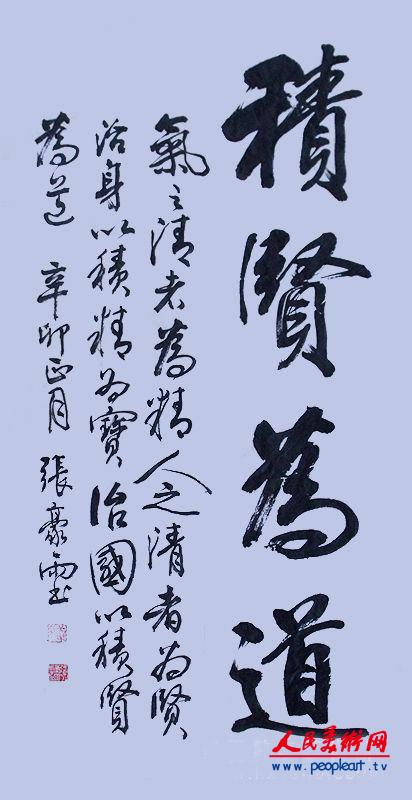 積賢為道
氣之清者為精人之清者为賢
治身以積精为寶治國以積賢
為道 辛卯正月 張豪
人民美術网
www.peopleart.tv